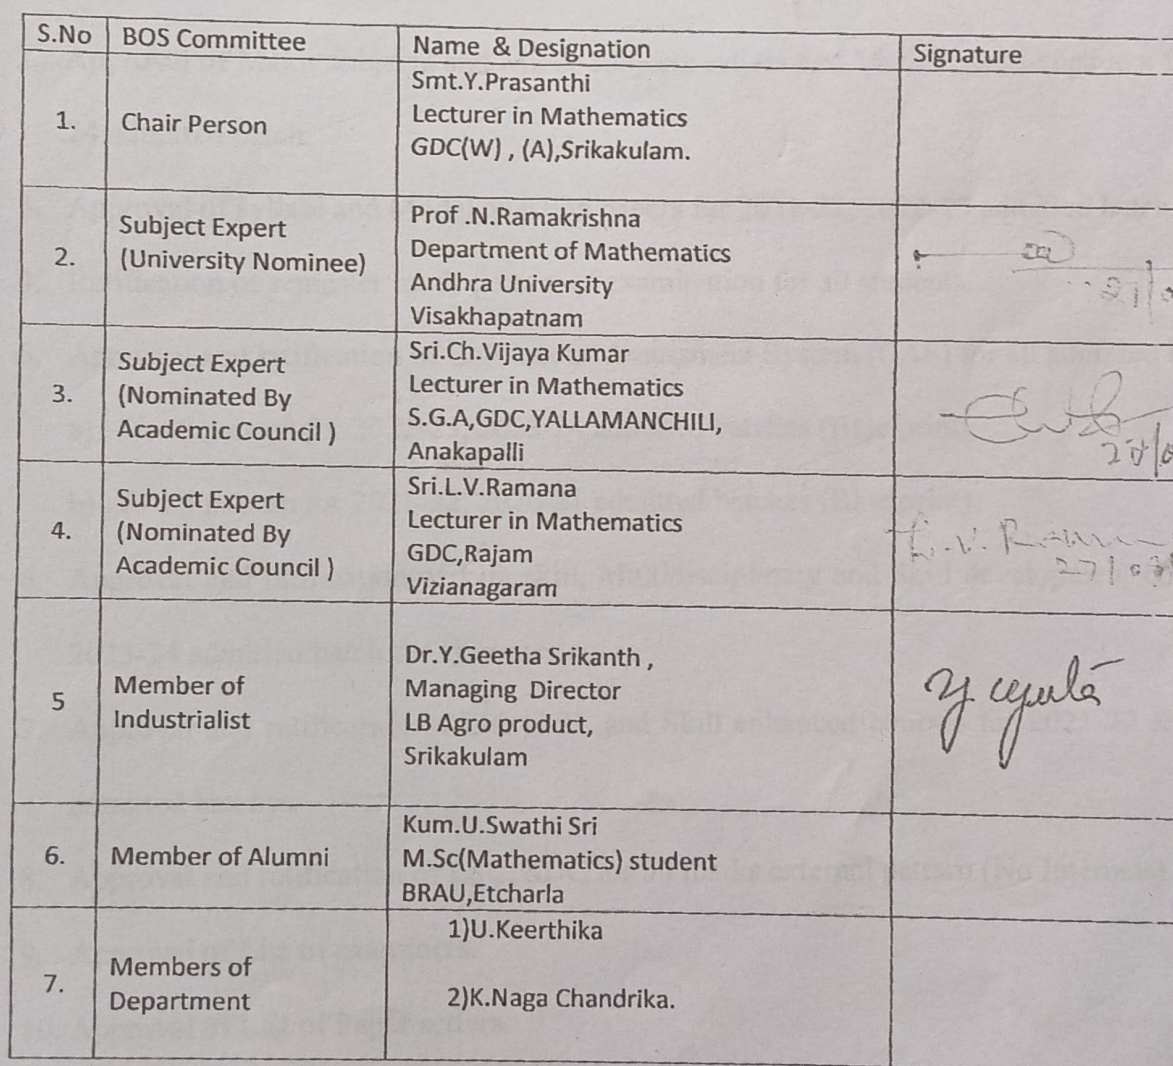 S.No BOS Committee Name & Designation Signature
1. Chair Person
Smt.Y.Prasanthi
Lecturer in Mathematics
GDC(W) , (A),Srikakulam.
2. Subject Expert
(University Nominee)
Prof .N.Ramakrishna
Department of Mathematics
Andhra University
Visakhapatnam
3. Subject Expert
(Nominated By
Academic Council )
Sri.Ch.Vijaya Kumar
Lecturer in Mathematics
S.G.A,GDC,YALLAMANCHILI,
Anakapalli
4. Subject Expert
(Nominated By
Academic Council )
Sri.L.V.Ramana
Lecturer in Mathematics
GDC,Rajam
Vizianagaram
5 Member of
Industrialist
Dr.Y.Geetha Srikanth ,
Managing Director
LB Agro product,
Srikakulam
6. Member of Alumni
Kum.U.Swathi Sri
M.Sc(Mathematics) student
BRAU,Etcharla
7. Members of
Department
1)U.Keerthika
2)K.Naga Chandrika.